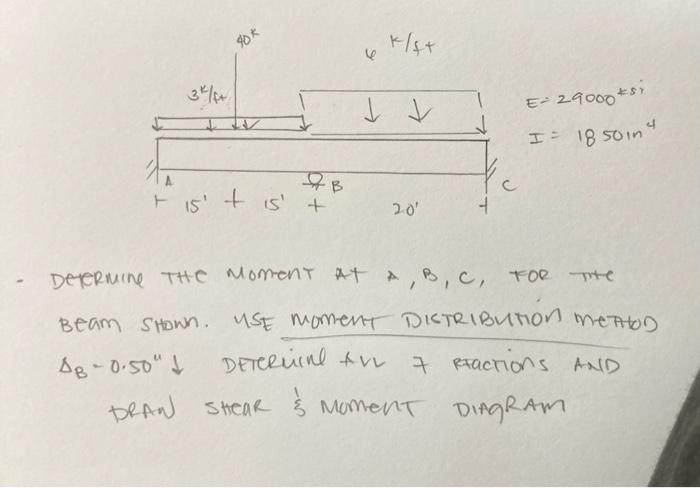 40k
6 k/ft
3k/ft
E = 29000 ksi
I = 1850 in4
A
B
C
15' + 15' + 20'
- DETERMINE THE MOMENT AT A, B, C, FOR THE
BEAM SHOWN. USE MOMENT DISTRIBUTION METHOD
ΔB = 0.50" ↓ DETERMINE ALL 7 REACTIONS AND
DRAW SHEAR & MOMENT DIAGRAM